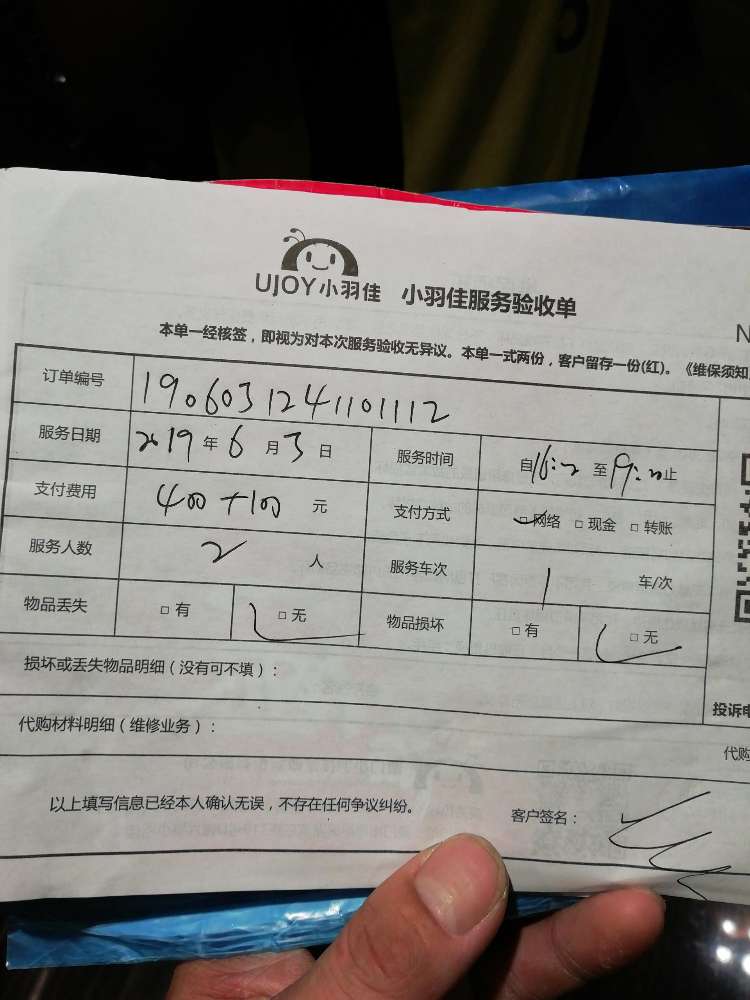 UJOY小羽佳 小羽佳服务验收单
N
本单一经核签，即视为对本次服务验收无异议。本单一式两份，客户留存一份(红)。《维保须知
订单编号 1906031241101112
服务日期 2019 年 6 月 3 日 服务时间 自 16: 至 19: 止
支付费用 400+100 元 支付方式 □网络 □现金 □转账
服务人数 2 人 服务车次 1 车/次
物品丢失 □有 □无 物品损坏 □有 □无
损坏或丢失物品明细（没有可不填）：
投诉电
代购材料明细（维修业务）：
代购
以上填写信息已经本人确认无误，不存在任何争议纠纷。 客户签名：